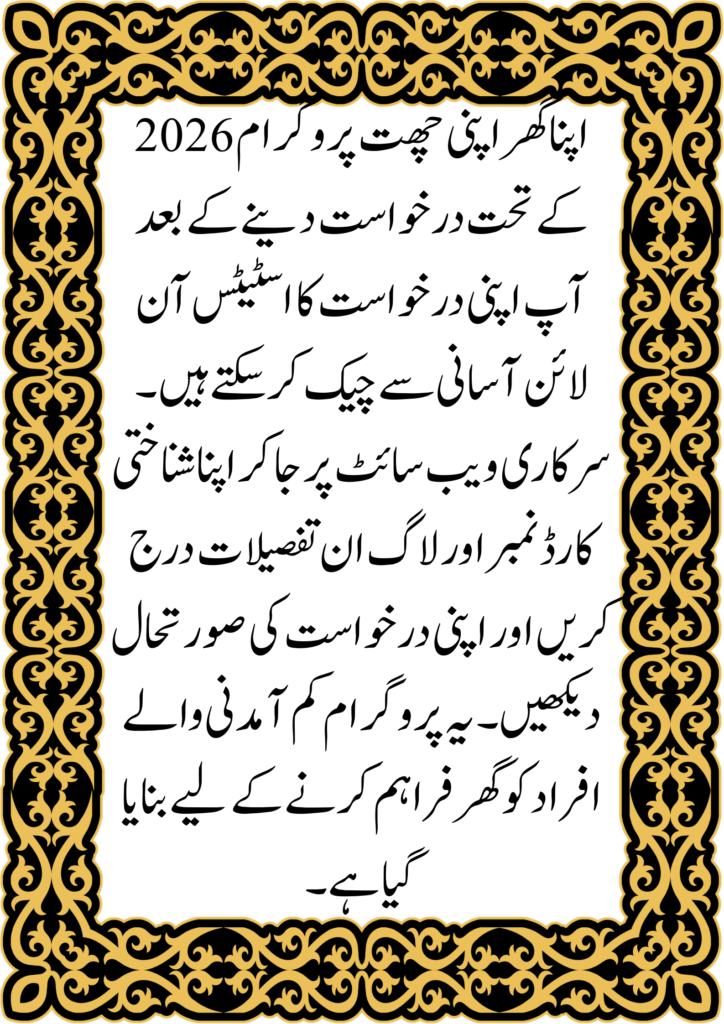 اپنا گھر اپنی چھت پروگرام 2026
کے تحت درخواست دینے کے بعد
آپ اپنی درخواست کا اسٹیٹس آن
لائن آسانی سے چیک کر سکتے ہیں۔
سرکاری ویب سائٹ پر جا کر اپنا شناختی
کارڈ نمبر اور لاگ ان تفصیلات درج
کریں اور اپنی درخواست کی صورتحال
دیکھیں۔ یہ پروگرام کم آمدنی والے
افراد کو گھر فراہم کرنے کے لیے بنایا
گیا ہے۔